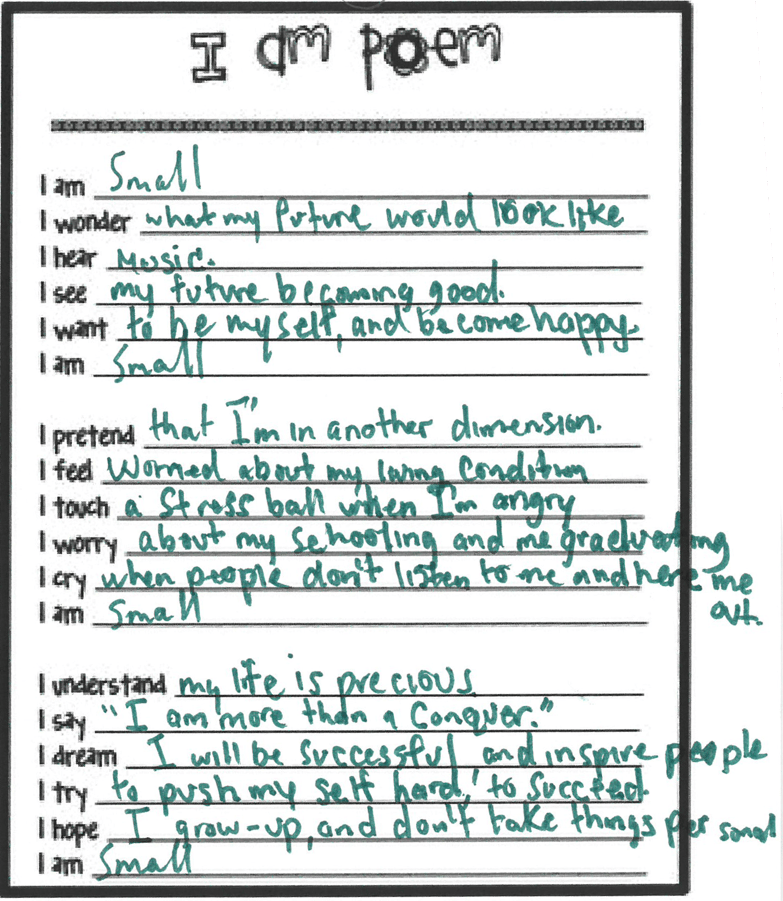 I am poem
I am Small
I wonder what my future would look like
I hear Music.
I see my future becoming good.
I want to be myself, and become happy.
I am Small
I pretend that I'm in another dimension.
I feel Worried about my living Condition
I touch a Stress ball when I'm angry
I worry about my schooling and me graduating
I cry when people don't listen to me and here me
out.
I am Small
I understand my life is precious
I say "I am more than a Conquer."
I dream I will be successful and inspire people
I try to push my self hard to Succeed
I hope I grow-up, and don't take things personal
I am Small